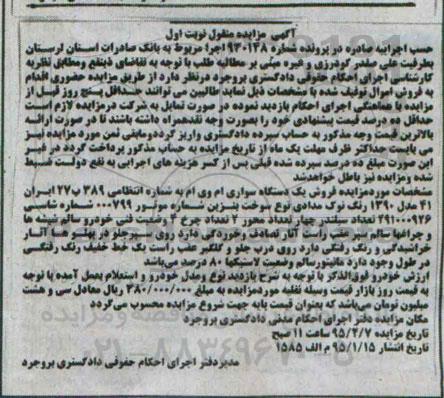 0181
آگهی مزایده منقول نوبت اول
حسب اجرائیه صادره در پرونده شماره ۹۳۰۱۳۸ اجرا مربوط به بانک صادرات استان لرستان
بطرفیت علی صفدر گودرزی و غیره مبنی بر مطالبه طلب با توجه به تقاضای ذینفع ومطابق نظریه
کارشناس اجرای احکام حقوقی دادگستری بروجرد درنظر دارد از طریق مزایده حضوری اقدام
به فروش اموال توقیف شده با مشخصات ذیل نماید طالبین می توانند حداقل پنج روز قبل از
مزایده با هماهنگی اجرای احکام بازدید نموده در صورت تمایل به شرکت درمزایده لازم است
حداقل ده درصد قیمت پیشنهادی خود را بصورت وجه نقدهمراه داشته باشند تا در صورت ارائه
بالاترین قیمت وجه مذکور به حساب سپرده دادگستری واریز گردد ومابقی ثمن مورد مزایده نیز
می بایست حداکثر ظرف مهلت یک ماه از تاریخ مزایده به حساب مذکور پرداخت گردد در غیر
این صورت مبلغ ده درصد سپرده شده قبلی پس از کسر هزینه های اجرایی به نفع دولت ضبط
شده ومزایده نیز باطل خواهدشد.
مشخصات موردمزایده فروش یک دستگاه سواری ام وی ام به شماره انتظامی ۳۸۹ ب ۲۷ ایران
۴۱ مدل ۱۳۹۰ رنگ نوک مدادی نوع سوخت بنزین شماره موتور ۰۰۰۷۹۹ شماره شاسی
۲۹۱۰۰۰۹۲۶ تعداد سیلندر چهار تعداد محور ۲ تعداد چرخ ۴ وضعیت فنی خودرو سالم شیشه ها
و چراغها سالم سپر عقب راست آثار تصادف وخوردگی دارد روی سپر جلو در پهلوی راست آثار
خراشیدگی و رنگ رفتگی دارد روی درب جلو و گلگیر عقب راست یک خط خفیف رنگ رفتگی
در طول وجود دارد مانیتورسالم وضعیت لاستیکها ۸۰ درصد می‌باشد
ارزش خودرو فوق‌الذکر با توجه به شرح بازدید نوع ومدل خودرو و استعلام بعمل آمده با توجه
به قیمت روز بازار قیمت وسیله نقلیه موردمزایده به مبلغ ۳۸۰/۰۰۰/۰۰۰ ریال معادل سی و هشت
میلیون تومان می‌باشد که بعنوان قیمت پایه جهت شروع مزایده محسوب می‌گردد
مکان مزایده دفتر اجرای احکام مدنی دادگستری بروجرد
تاریخ مزایده ۹۵/۴/۷ ساعت ۱۱ صبح
تاریخ انتشار ۹۵/۱/۱۵ م الف ۱۵۸۵
مدیردفتر اجرای احکام حقوقی دادگستری بروجرد